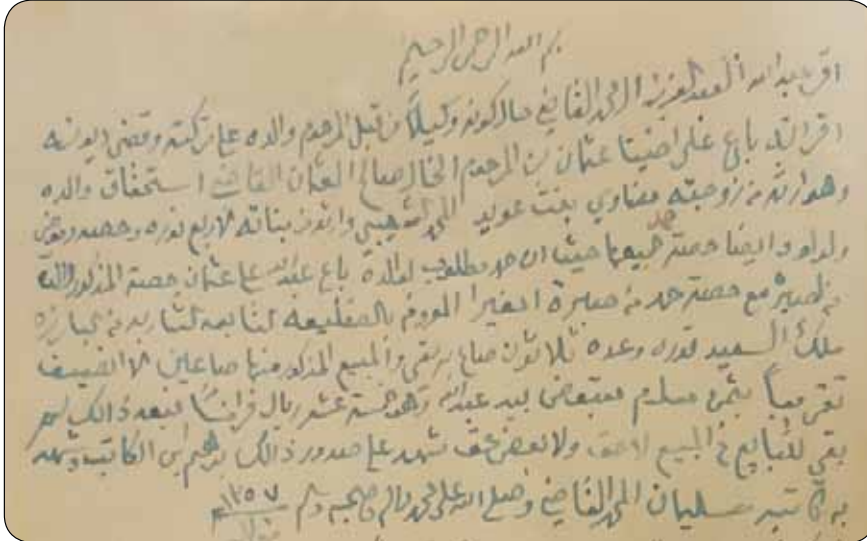 بسم الله الرحمن الرحيم
اقر عبدالله العبدالعزيز المحمد القاضي حال كونه وكيلاً من قبل المرحوم والده على تركته وقضى ديونه
اقر بانه باع على اخينا عثمان بن المرحوم الخال صالح العثمان القاضي استحقاق والده
وهو ارثه من زوجته مضاوي بنت عويد وارثهن بناته الاربع نوره وحصه
ولولوه وايضا حصة حيث ان مطلوب لوالده باع عبدالله على عثمان حصة المذكورات
من صبرة مع حصة حمد من صبرة المعروف بالصقليعه
ملك السيد قدره وعده ثلاثون صاع نقي والمبيع المذكور منها صاعين الا نصيف
تقريباً بثمن مسلم مقبوض بيد عبدالله وهو خمسة عشر ريال فرانسا فبعد ذالك لم
يبقى للبايع في المبيع لا حق ولا بعض حق شهد على صدور ذالك ابراهيم ابن الكاتب وشهد
به كاتبه سليمان المحمد القاضي وصلى الله على محمد واله وصحبه وسلم ١٢٥٧